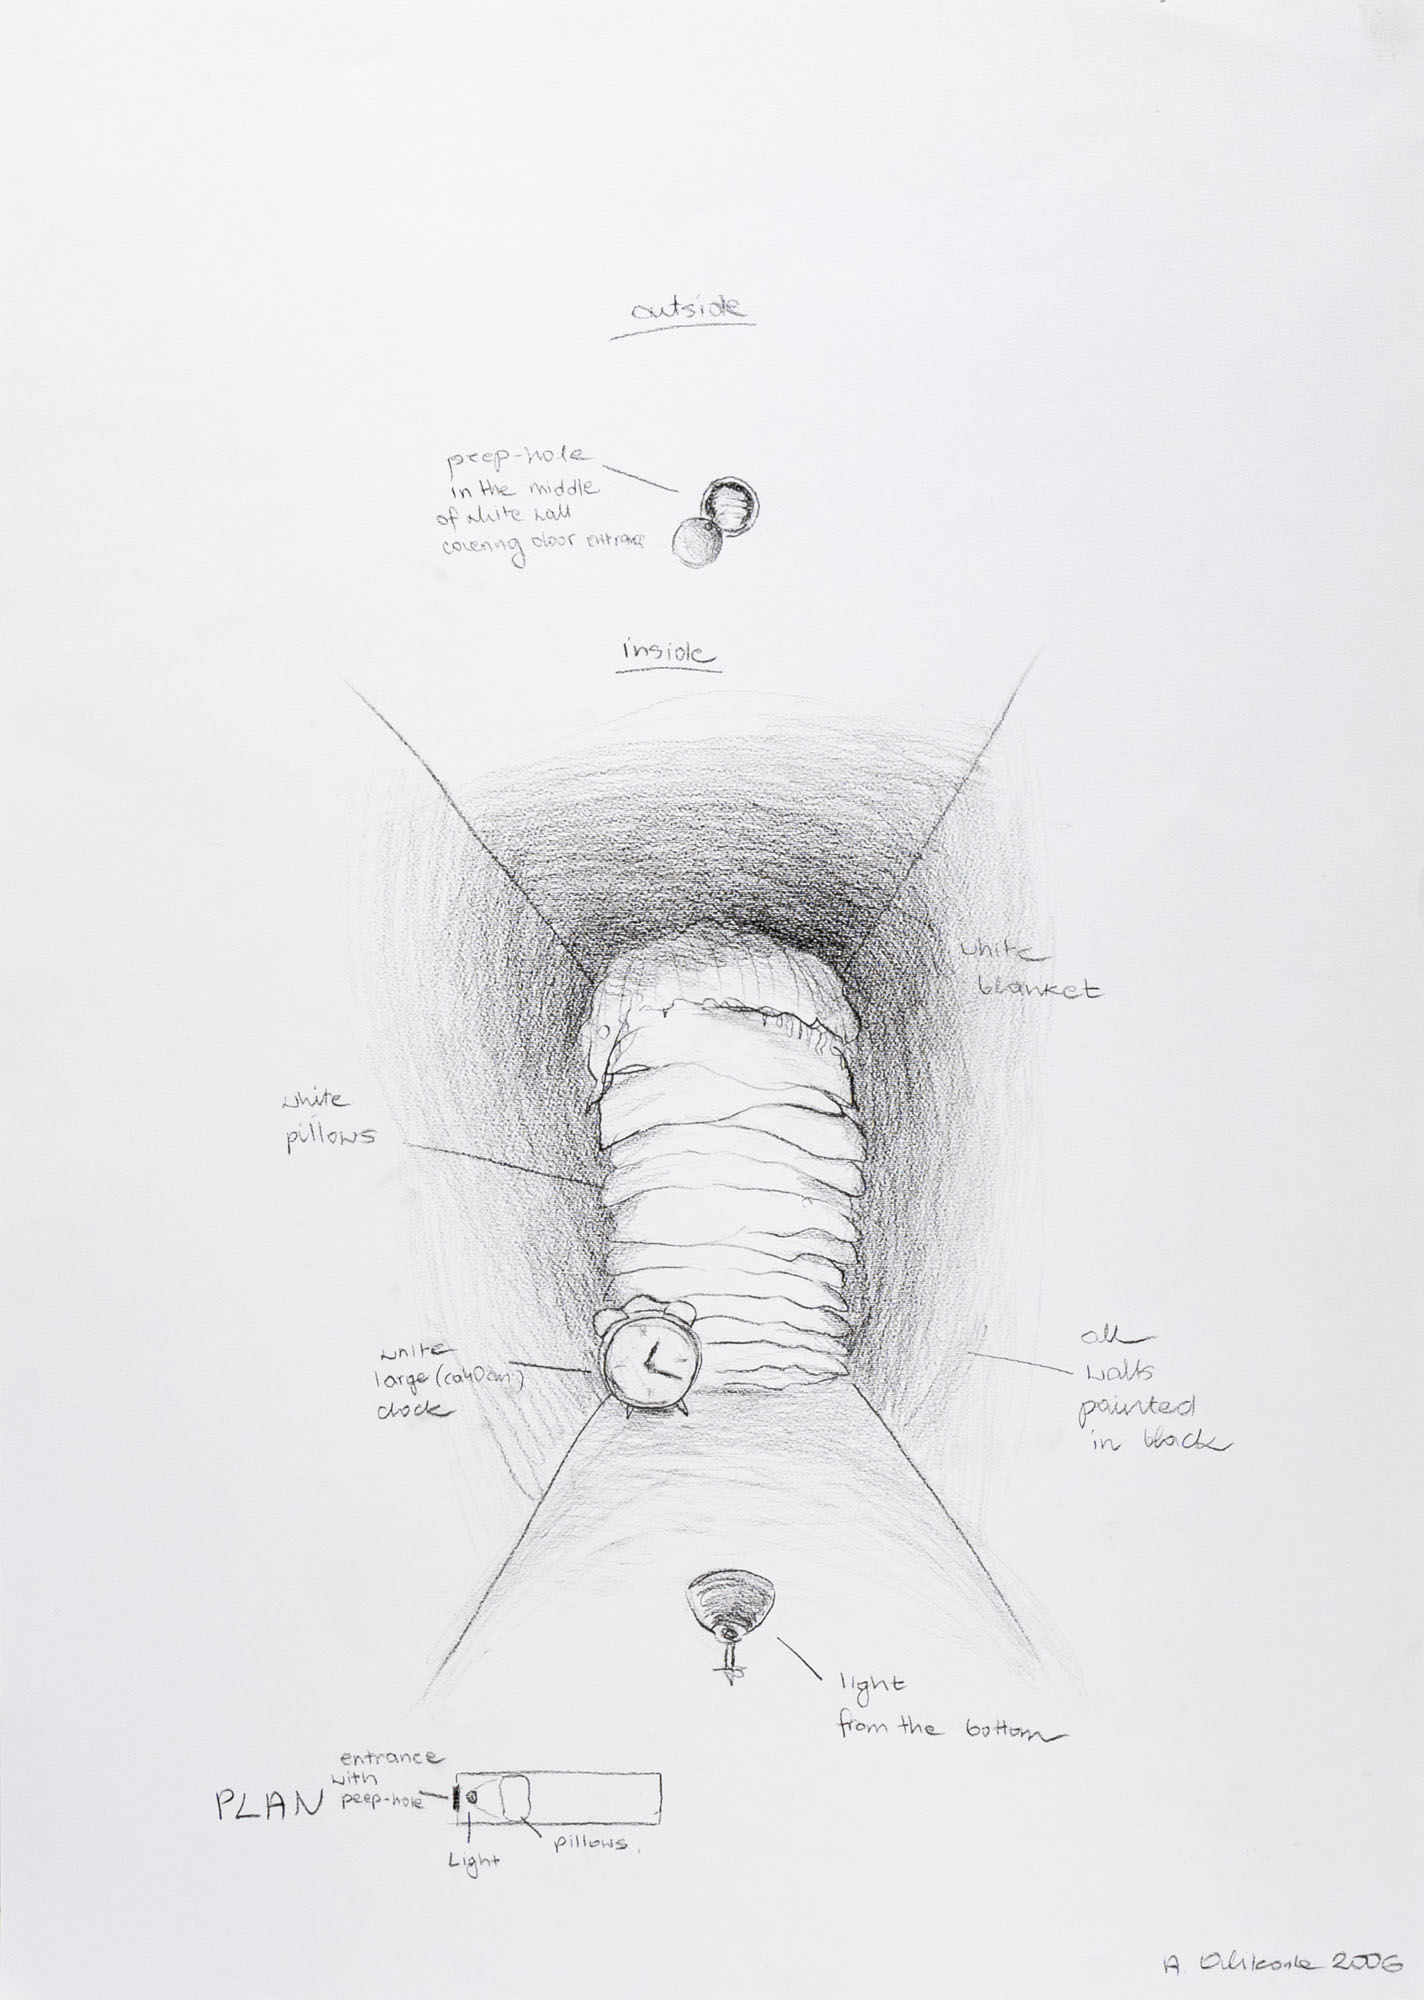 outside
peep-hole
in the middle
of white wall
covering door entrance
inside
white
blanket
white
pillows
white
large (ca 40cm)
clock
all
walls
painted
in black
light
from the bottom
PLAN
entrance
with
peep-hole
Light
pillows.
A. 2006